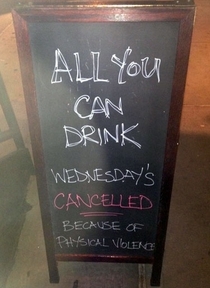 ALL YOU
CAN
DRINK
WEDNESDAY'S
CANCELLED
BECAUSE OF
PHYSICAL VIOLENCE